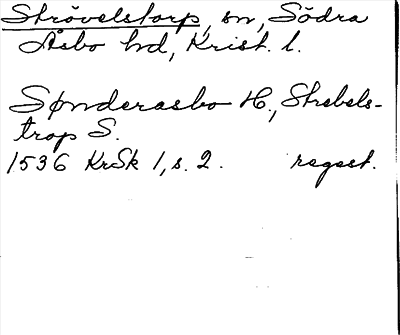 Strövelstorp, sn, Södra
Åsbo hd, Krist. l.
Sønderasbo H., Strebels-
trop S.
1536 KrSk 1, s. 2. regest.